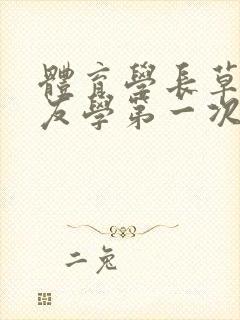 體育學長草
友學第一次
二兔